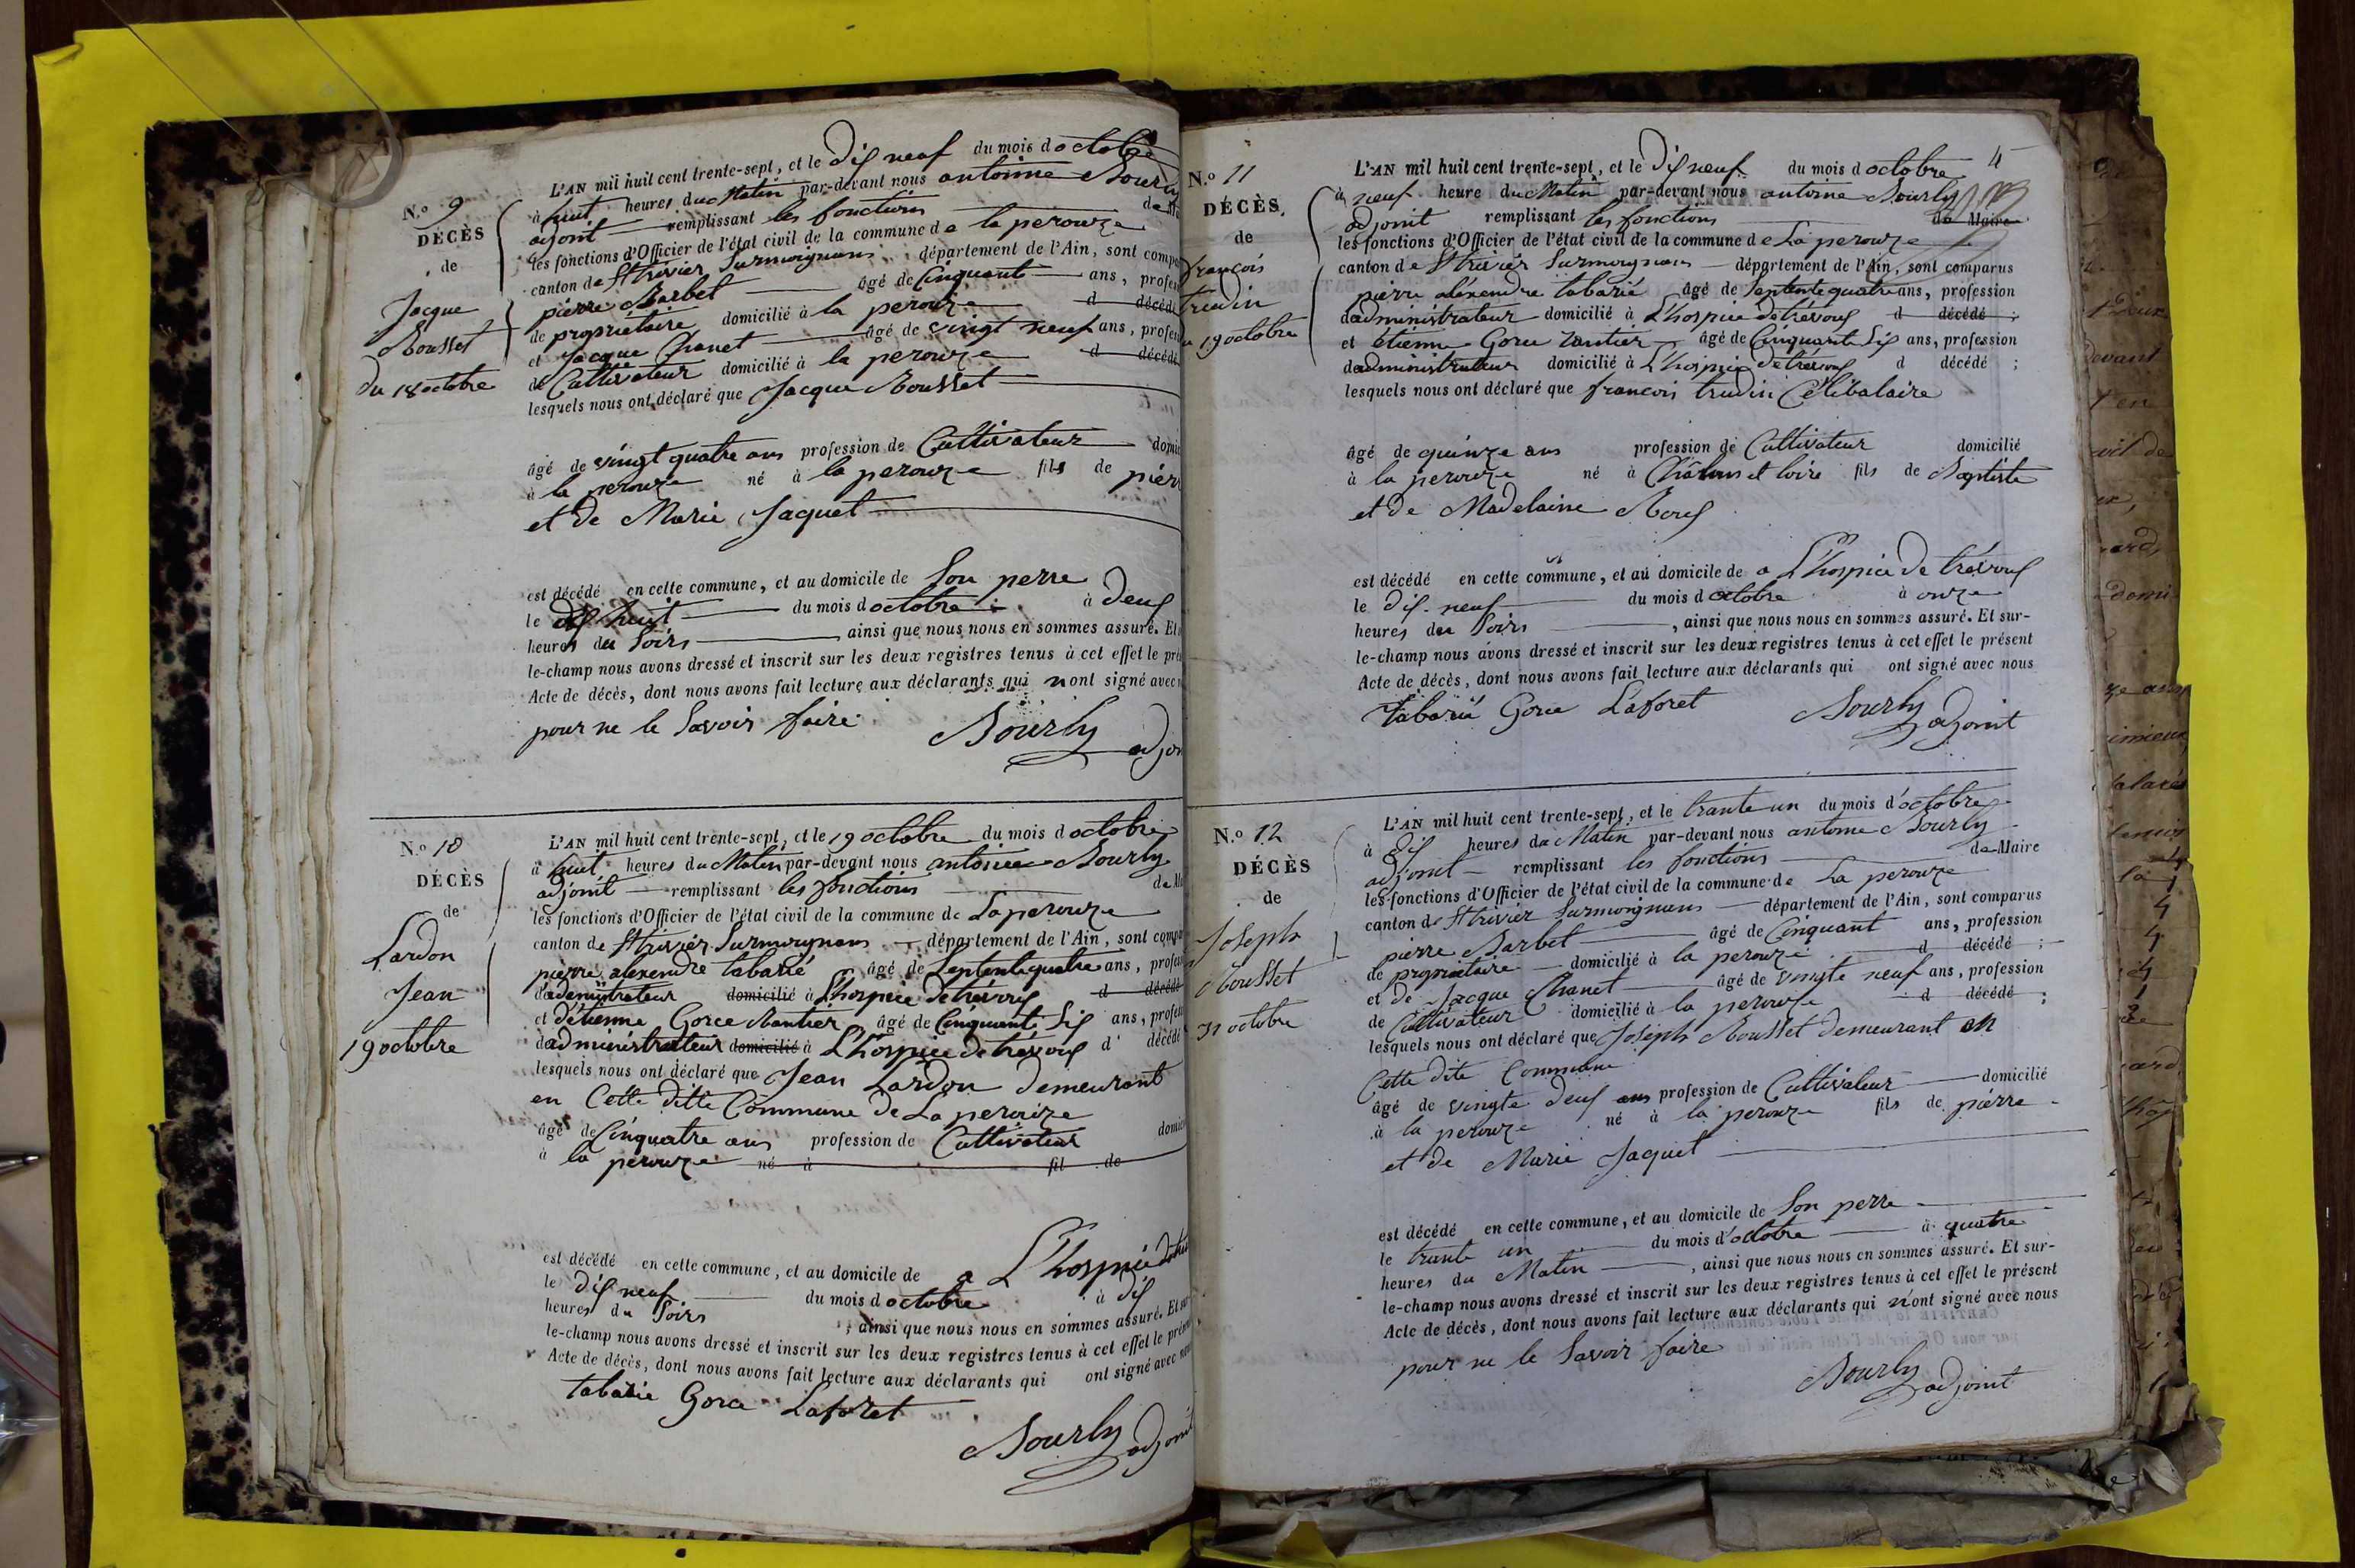 N.º 9
DÉCÈS
de
Jacque
Mousset
du 18 octobre
L'AN mil huit cent trente-sept, et le dix neuf du mois d octobre
à huit heures du Matin par-devant nous antoinne Bourly
adjoint remplissant les fonctions de
les fonctions d'Officier de l'état civil de la commune de la perouze
canton de St trivier Surmoignans département de l'Ain, sont
pierre Barbet âgé de Cinquant ans,
de propriétaire domicilié à la perouze d décédé
et Jacque Chanet âgé de vingt neuf ans,
de Cultivateur domicilié à la perouze d décédé
lesquels nous ont déclaré que Jacque Mousset
âgé de vingt quatre ans profession de Cultivateur
à la perouze né à la perouze fils de
et de Marie Jaquet
est décédé en cette commune, et au domicile de Son perre
le dix huit du mois d octobre à deux
heures du Soirs, ainsi que nous nous en sommes assuré. Et
le-champ nous avons dressé et inscrit sur les deux registres tenus à cet effet le
Acte de décès, dont nous avons fait lecture aux déclarants qui n ont signé avec
pour ne le Savoir faire
Bourly
N.º 10
DÉCÈS
de
Lardon
Jean
19 octobre
L'AN mil huit cent trente-sept, et le 19 octobre du mois d octobre
à huit heures du Matin par-devant nous antoine Bourly
adjoint remplissant les fonctions de
les fonctions d'Officier de l'état civil de la commune de Laperouze
canton de St trivier Surmoignans département de l'Ain, sont
pierre alexendre tabarié âgé de Septente quatre ans,
domicilié à L'hospice de trévoux d décédé
et d'étienne Gorce Rantier âgé de Cinquante Six ans,
d'administrateur domicilié à L'hospice de trévoux d décédé
lesquels nous ont déclaré que Jean Lardon demeurant
en Cette ditte Commune de La perouze
âgé de Cinquatre ans profession de Cultivateur
à la perouze né à fil de
est décédé en cette commune, et au domicile de a L'hospice
le dix neuf du mois d octobre à dix
heures du Soirs, ainsi que nous nous en sommes assuré. Et
le-champ nous avons dressé et inscrit sur les deux registres tenus à cet effet le
Acte de décès, dont nous avons fait lecture aux déclarants qui ont signé avec
tabarie Gorce Laforet
Bourly
adjoint
N.º 11
DÉCÈS,
de
françois
trudin
19 octobre
4
L'AN mil huit cent trente-sept, et le dix neuf du mois d octobre
à neuf heure du Matin par-devant nous antoine Bourly
adjonit remplissant les fonctions de Maire
les fonctions d'Officier de l'état civil de la commune de La perouze
canton de St trivier Surmoignans département de l'Ain, sont comparus
pierre aléxendre tabarié âgé de Septente quatre ans, profession
dadministrateur domicilié à L'hospice de trévoux d décédé ;
et étienne Gorce rantier âgé de Cinquante Six ans, profession
dadministrateur domicilié à L'hospice de trévoux d décédé ;
lesquels nous ont déclaré que françois trudin Célibataire
âgé de quinze ans profession de Cultivateur domicilié
à la perouze né à Châlons et loire fils de Baptiste
et de Madelaine
est décédé en cette commune, et au domicile de a L'hospice de trévoux
le dix neuf du mois d octobre à onze
heures du Soirs, ainsi que nous nous en sommes assuré. Et sur-
le-champ nous avons dressé et inscrit sur les deux registres tenus à cet effet le présent
Acte de décès, dont nous avons fait lecture aux déclarants qui ont signé avec nous
tabarié Gorce Laforet
Bourly
adjonit
N.º 12
DÉCÈS
de
Joseph
Mousset
31 octobre
L'AN mil huit cent trente-sept, et le trante un du mois d'octobre
à dix heures du Matin par-devant nous antoine Bourly
adjonit remplissant les fonctions de Maire
les fonctions d'Officier de l'état civil de la commune de La perouze
canton de St trivier Surmoignans département de l'Ain, sont comparus
pierre Barbet âgé de Cinquant ans, profession
de propriétaire domicilié à la perouze d décédé ;
et de Jacque Chanet âgé de vingte neuf ans, profession
de Cultivateur domicilié à la perouze d décédé ;
lesquels nous ont déclaré que Joseph Mousset demeurant en
Cette dite Commune
âgé de vingte deux ans profession de Cultivateur domicilié
à la perouze né à la perouze fils de pierre
et de Marie Jaquet
est décédé en cette commune, et au domicile de Son perre
le trante un du mois d'octobre à quatre
heures du Matin, ainsi que nous nous en sommes assuré. Et sur-
le-champ nous avons dressé et inscrit sur les deux registres tenus à cet effet le présent
Acte de décès, dont nous avons fait lecture aux déclarants qui n'ont signé avec nous
pour ne le Savoir faire
Bourly
adjonit